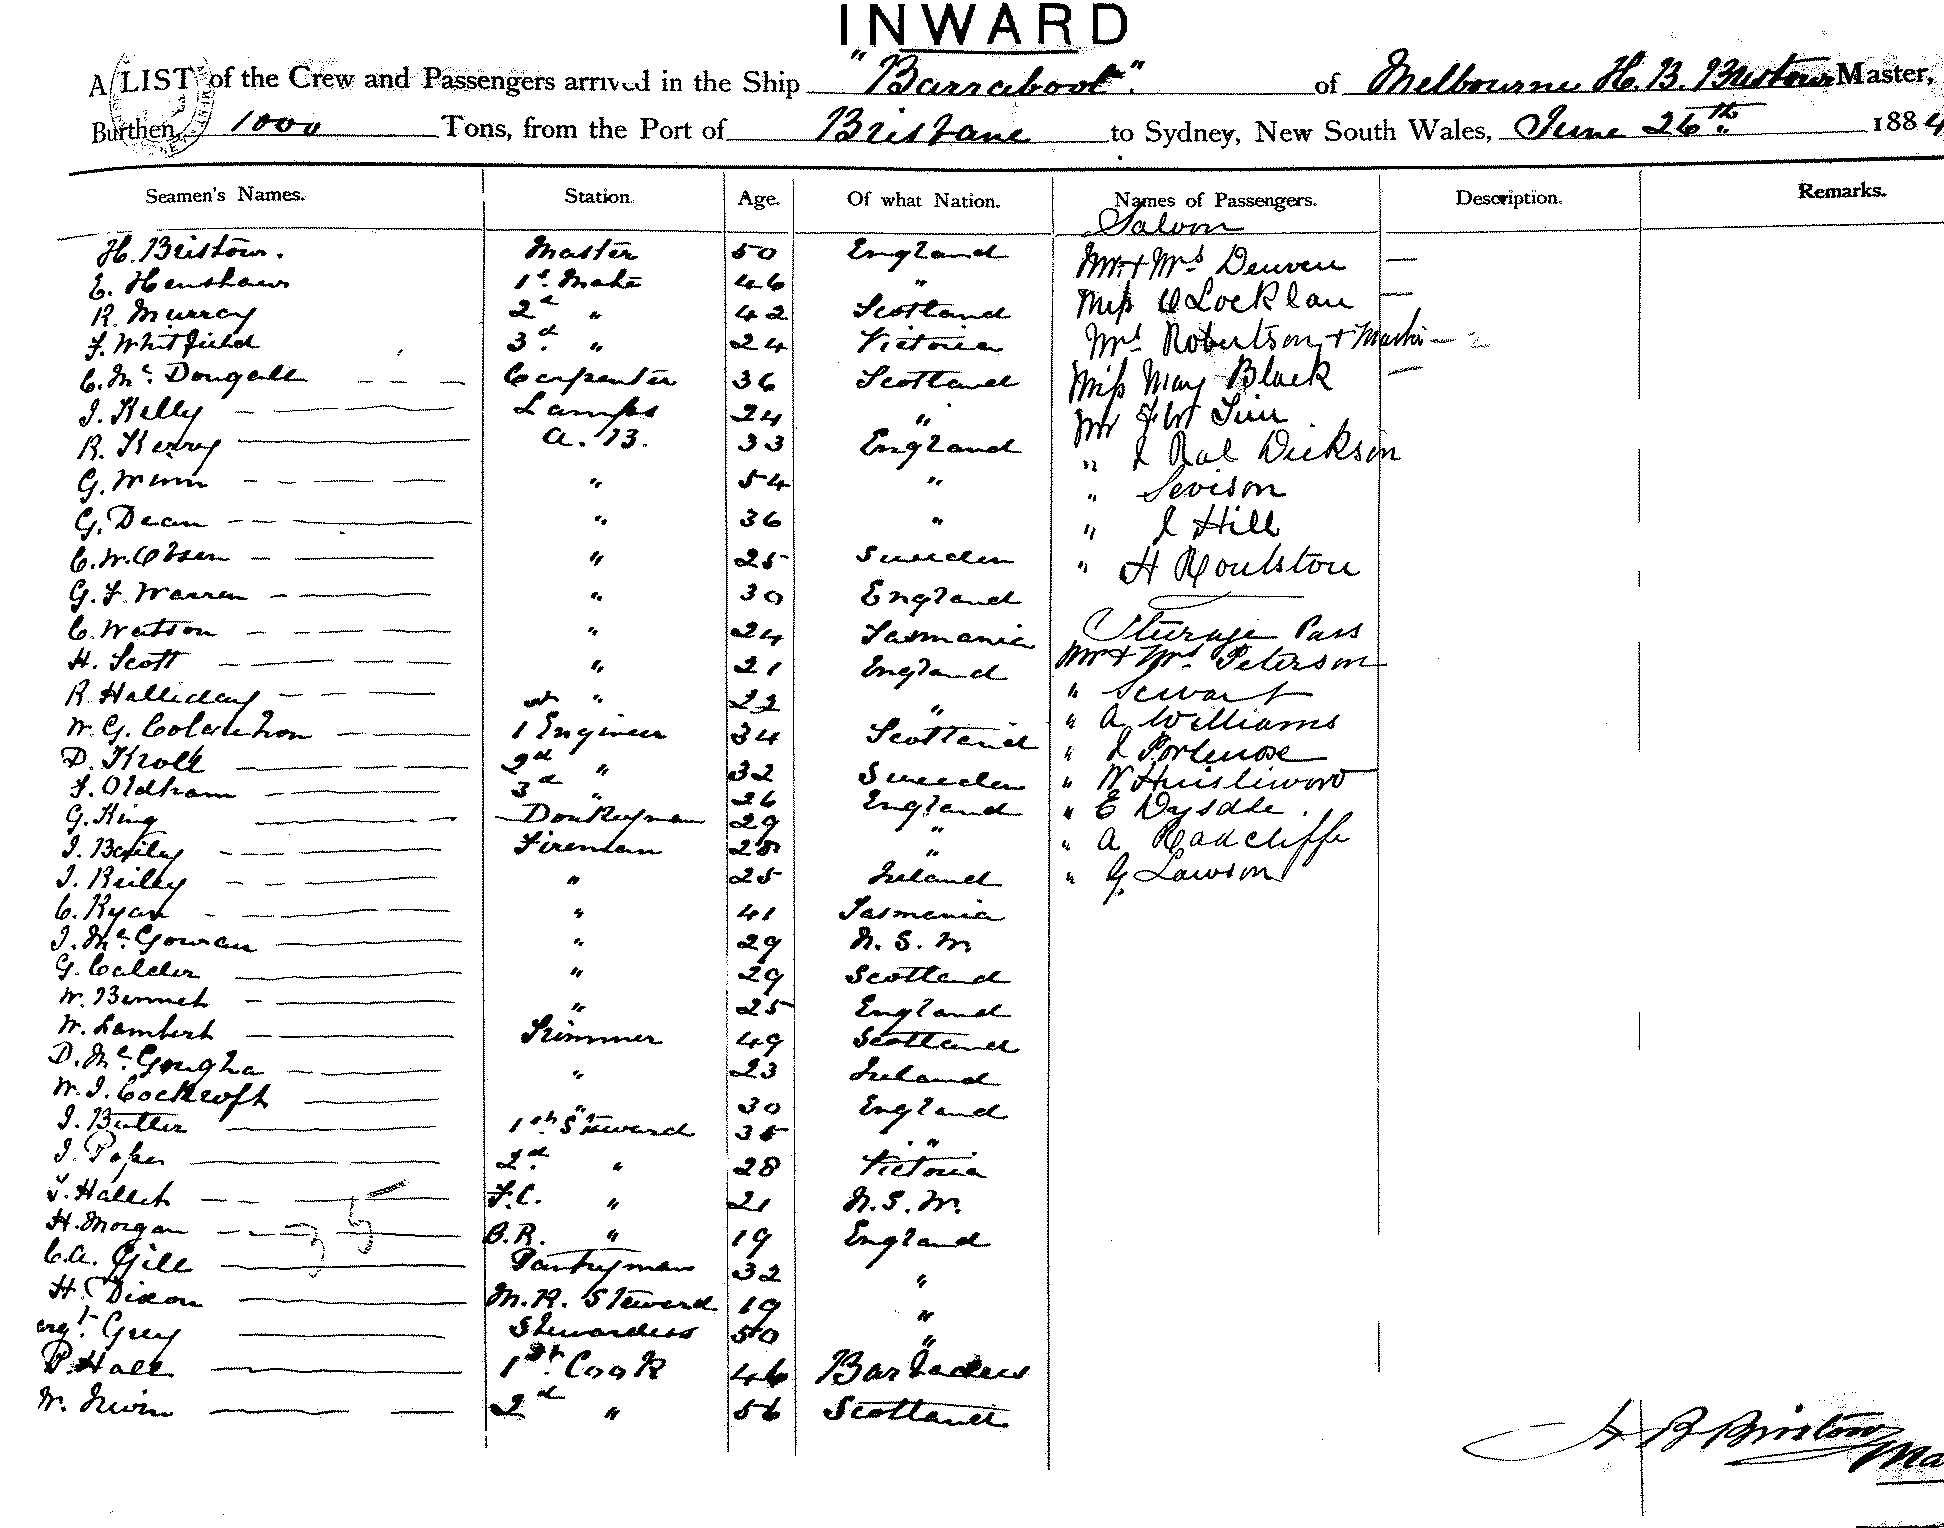 INWARD
A LIST of the Crew and Passengers arrived in the Ship "Barrabool" of Melbourne H. B. Bristow Master,
Burthen, 1000 Tons, from the Port of Brisbane to Sydney, New South Wales, June 26th 1884
Seamen's Names. Station Age. Of what Nation. Names of Passengers. Description. Remarks.
Saloon
H. Bristow. Master 50 England Mr + Mrs Denven —
E. Henshaw 1st Mate 46 " Miss OLocklan —
R. Murray 2d " 42 Scotland Mrs Robertson + —
F. Whitfield 3d. " 24 Victoria Miss May Black —
C. Mc Dougall Carpenter 36 Scotland Mr
J. Kelly Lamps 24 " " J Dickson
R. Kerry A. B. 33 England "
G. Winn " 54 " " J Hill
G. Dean " 36 " " H Roulston
C. W. Olsen " 25 Sweeden
G. F. Warren " 30 England Pass
C. Watson " 24 Tasmania Mr + Mrs Peterson
H. Scott " 21 England " Sewart
R. Halliday " 22 " " A Williams
W. G. Colquhon 1 Engineer 34 Scotland " J
D. Kroll 2d " 32 Sweeden " W
F. Oldham 3d " 26 England " E Dysdle.
G. King Donkeyman 29 " " A Radcliffe
J. Bailey Fireman 28 " " G. Lawson
J. Reiley " 25 Ireland
C. Ryan " 41 Tasmania
J. Mc Gowan " 29 N. S. W
G. Calder " 29 Scotland
W. Bennet " 25 England
W. Lambert Trimmer 49 Scotland
D. Mc " 23 Ireland
W. J. Cockroft " 30 England
J. Butler 1st Steward 35 "
J. Pope 2d. " 28 Victoria
T. Hallet F.C. " 21 N. S. W.
H. Morgan B. R. " 19 England
C. A. Gill Pantryman 32 "
H. Dixon M. R. Steward 19 "
Grey Stewardess 50 "
P. Hall 1st Cook 46 Barbadeus
W. Irwin 2d " 56 Scotland
35
H B Bristow
Ma